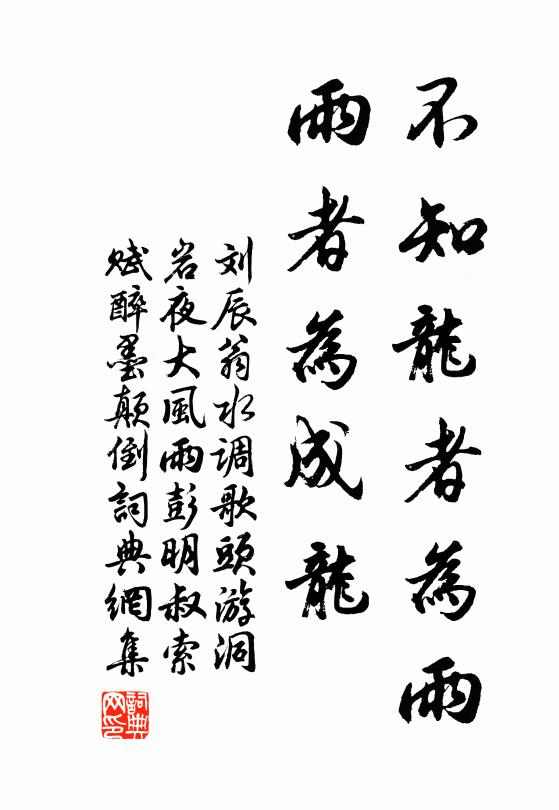 不知龍者為雨
雨者為成龍
刘辰翁水调歌頭游洞
岩夜大風雨彭明叔索
赋醉墨颠倒詞典網集
詞典网印